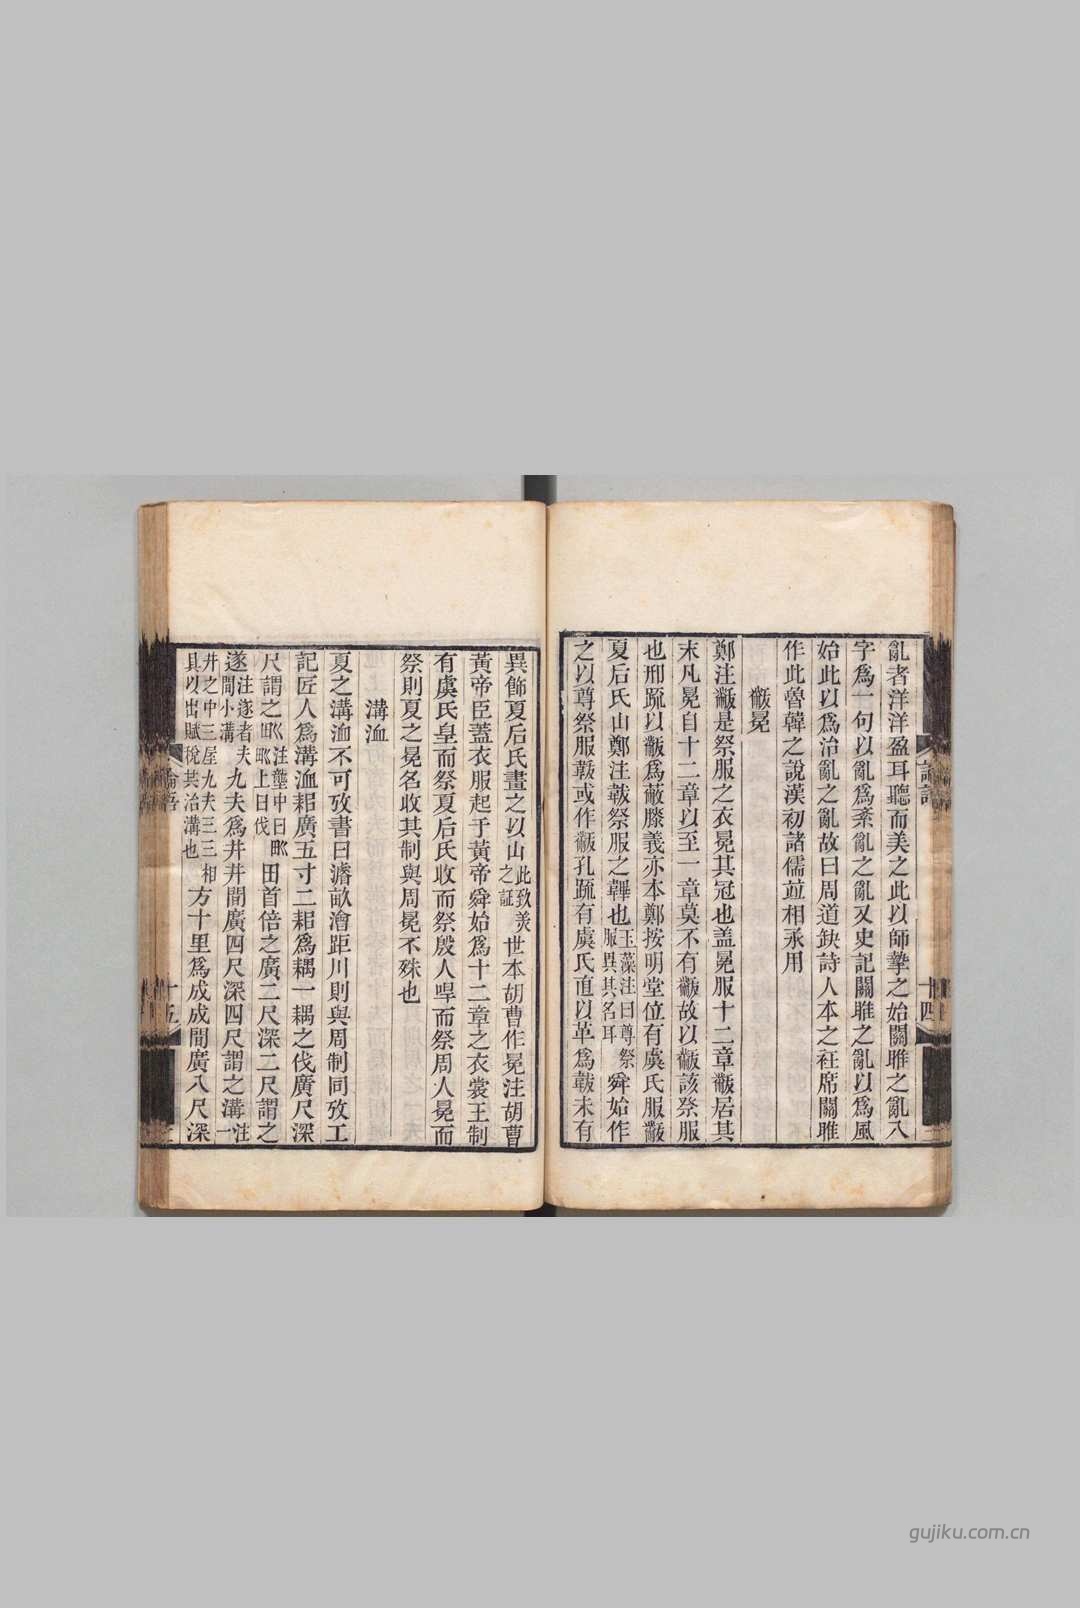 亂者洋洋盈耳聽而美之此以師摯之始關雎之亂入
字爲一句以亂爲紊亂之亂又史記關雎之亂以爲風
始此以爲治亂之亂故曰周道缺詩人本之衽席關雎
作此魯韓之說漢初諸儒竝相承用
黻冕
鄭注黻是祭服之衣冕其冠也盖冕服十二章黻居其
末凡冕自十二章以至一章莫不有黻故以黻該祭服
也邢疏以黻爲蔽膝義亦本鄭按明堂位有虞氏服黻
夏后氏山鄭注韍祭服之韠也玉藻注曰尊祭服異其名耳舜始作
之以尊祭服韍或作黻孔疏有虞氏直以革爲韍未有
論語
十四
異飾夏后氏畫之以山此致美之証世本胡曹作冕注胡曹
黃帝臣蓋衣服起于黃帝舜始爲十二章之衣裳王制
有虞氏皇而祭夏后氏收而祭殷人哻而祭周人冕而
祭則夏之冕名收其制與周冕不殊也
溝洫
夏之溝洫不可攷書曰濬畝澮距川則與周制同攷工
記匠人爲溝洫耜廣五寸二耜爲耦一耦之伐廣尺深
尺謂之𤰕注壟中曰𤰕𤰕上曰伐田首倍之廣二尺深二尺謂之
遂注遂者夫間小溝九夫爲井井間廣四尺深四尺謂之溝注一
井之中三屋九夫三三相具以出賦稅共治溝也方十里爲成成間廣八尺深
論語
十五
gujiku.com.cn